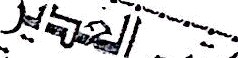 الغدير